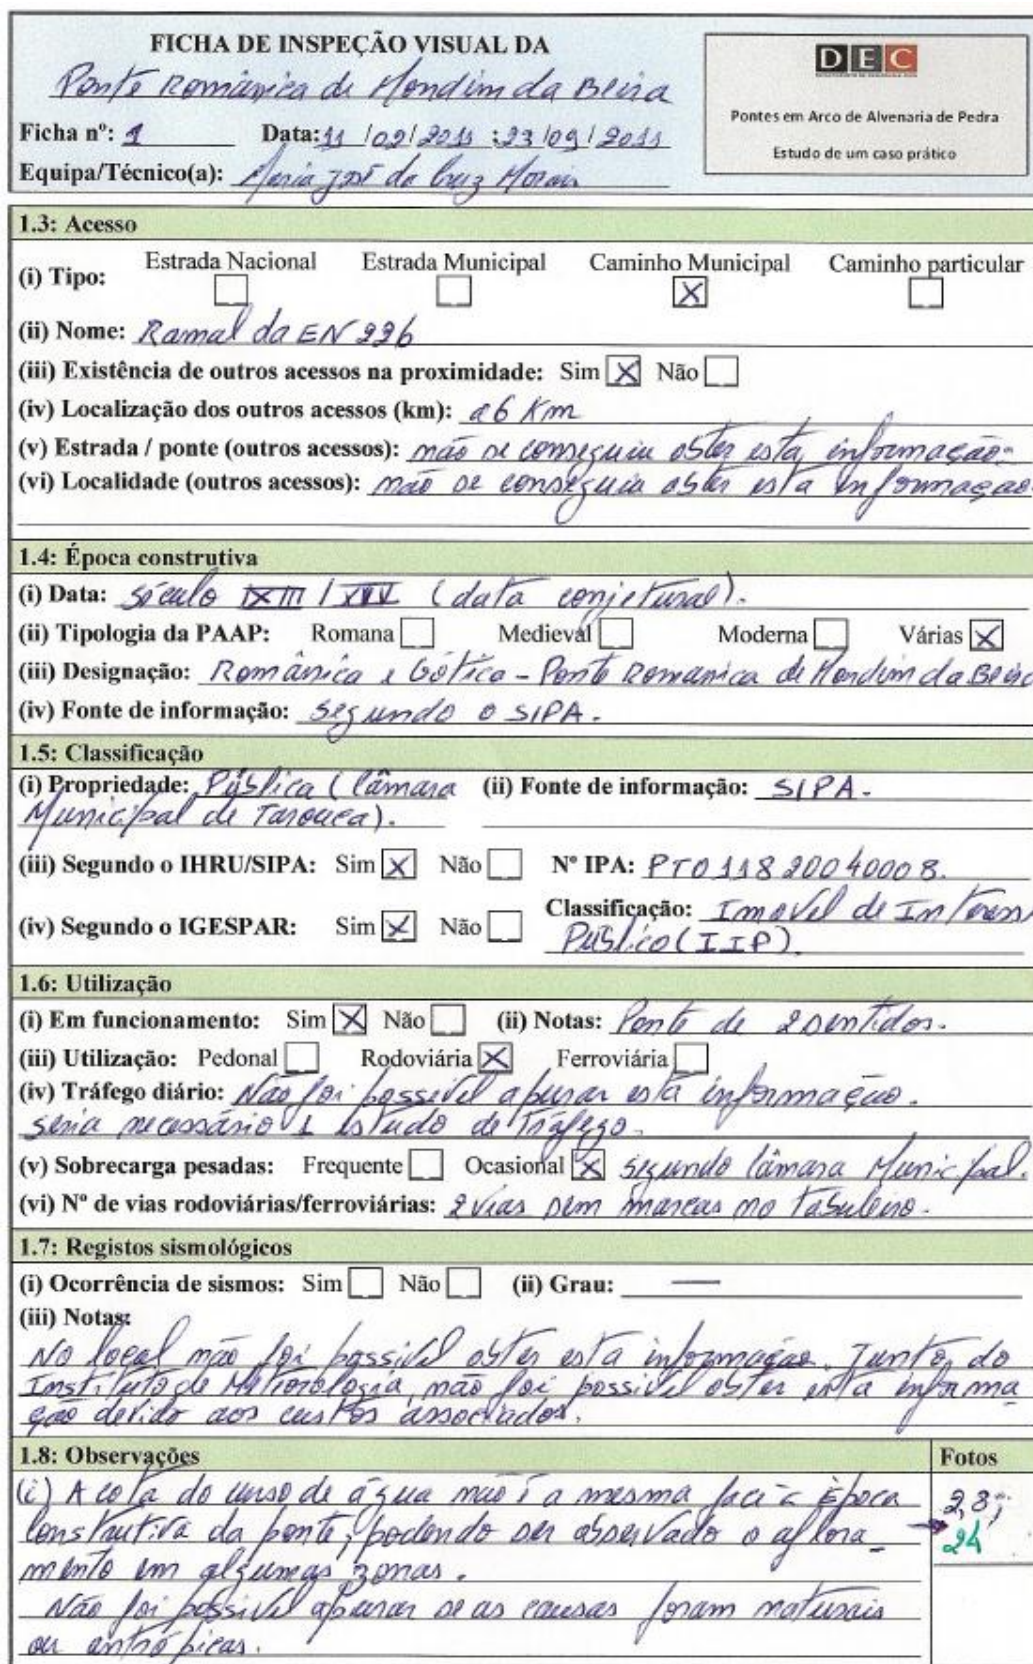 FICHA DE INSPEÇÃO VISUAL DA
Ponte Românica de Mondim da Beira
Ficha nº: 1 Data: 11 /09/2011 : 23/09/2011
Equipa/Técnico(a): Maria José da Cruz Morais
DEC
Pontes em Arco de Alvenaria de Pedra
Estudo de um caso prático
1.3: Acesso
(i) Tipo: Estrada Nacional ☐ Estrada Municipal ☐ Caminho Municipal ☒ Caminho particular ☐
(ii) Nome: Ramal da EN 226
(iii) Existência de outros acessos na proximidade: Sim ☒ Não ☐
(iv) Localização dos outros acessos (km): a 6 Km
(v) Estrada / ponte (outros acessos): não se conseguiu obter esta informação.
(vi) Localidade (outros acessos): não se conseguiu obter esta informação
1.4: Época construtiva
(i) Data: século XIII / XIV (data conjetural).
(ii) Tipologia da PAAP: Romana ☐ Medieval ☐ Moderna ☐ Várias ☒
(iii) Designação: Românica e Gótica - Ponte Romanica de Mondim da Beira
(iv) Fonte de informação: Segundo o SIPA.
1.5: Classificação
(i) Propriedade: Pública (Câmara (ii) Fonte de informação: SIPA.
Municipal de Tarouca).
(iii) Segundo o IHRU/SIPA: Sim ☒ Não ☐ Nº IPA: PT011820040008.
(iv) Segundo o IGESPAR: Sim ☒ Não ☐ Classificação: Imovel de Interess
Público (IIP).
1.6: Utilização
(i) Em funcionamento: Sim ☒ Não ☐ (ii) Notas: Ponte de 2 sentidos.
(iii) Utilização: Pedonal ☐ Rodoviária ☒ Ferroviária ☐
(iv) Tráfego diário: Não foi possivel apurar esta informação.
seria necessário 1 estudo de tráfego.
(v) Sobrecarga pesadas: Frequente ☐ Ocasional ☒ segundo Câmara Municipal.
(vi) Nº de vias rodoviárias/ferroviárias: 2 vias sem marcas no tabuleiro.
1.7: Registos sismológicos
(i) Ocorrência de sismos: Sim ☐ Não ☐ (ii) Grau: —
(iii) Notas:
No local não foi possivel obter esta informação. Junto do
Instituto de Meteorologia, não foi possivel obter esta informa
ção devido aos custos associados.
1.8: Observações Fotos
(i) A cota do curso de água não é a mesma face à Época 2,8;
Construtiva da ponte, podendo ser observado o aflora- 24
mento em algumas zonas.
Não foi possivel apurar se as causas foram naturais
ou antrópicas.